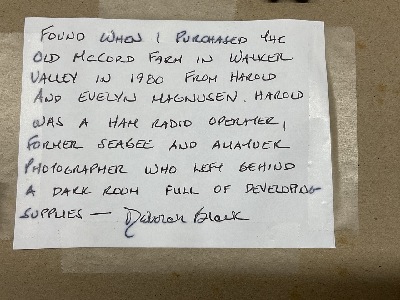 FOUND WHEN I PURCHASED THE
OLD McCORD FARM IN WALKER
VALLEY IN 1980 FROM HAROLD
AND EVELYN MAGNUSEN. HAROLD
WAS A HAM RADIO OPERATER,
FORMER SEABEE AND AMATUER
PHOTOGRAPHER WHO LEFT BEHIND
A DARK ROOM FULL OF DEVELOPING
SUPPLIES — Deborah Black